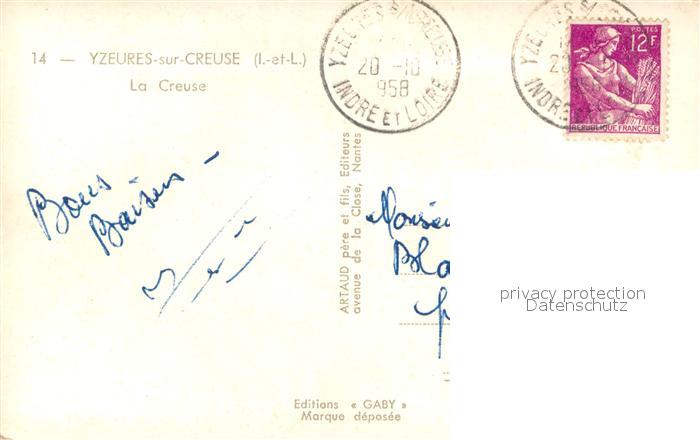 14 — YZEURES-sur-CREUSE (I.-et-L.)
La Creuse
YZEURES S/CREUSE
20 -10
1958
INDRE ET LOIRE
POSTES
12F
REPUBLIQUE FRANÇAISE
Bons
Baisers -
ARTAUD père et fils, Editeurs
avenue de la Close, Nantes
privacy protection
Datenschutz
Editions « GABY »
Marque déposée